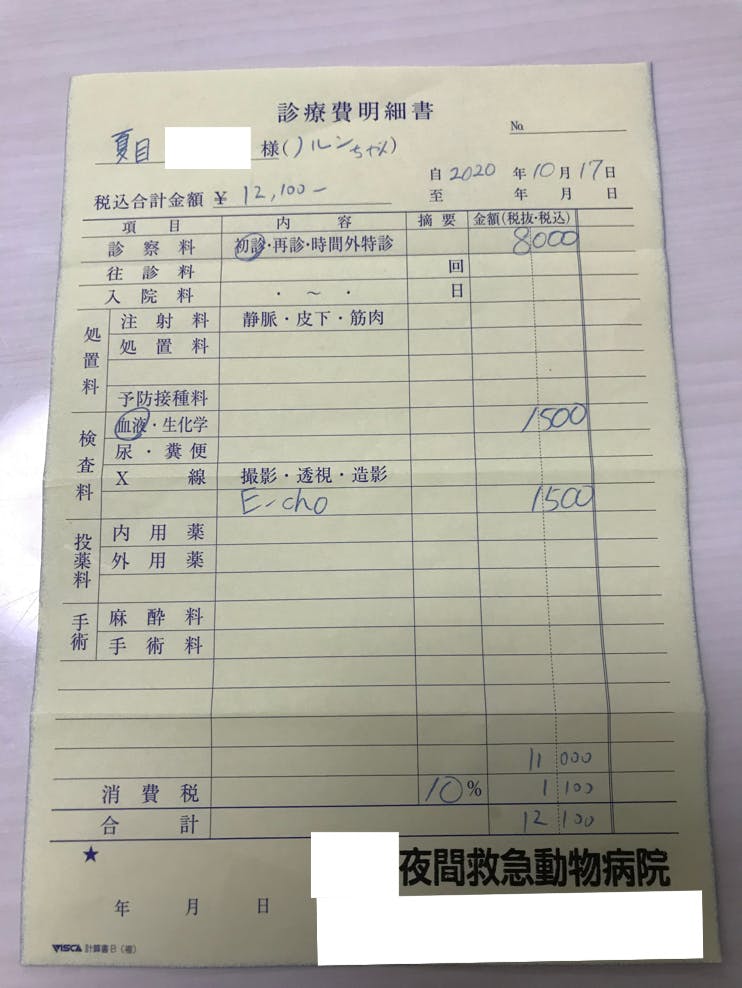 診療費明細書
No.
夏目 様(ノルンちゃん)
自 2020 年 10 月 17 日
税込合計金額 ¥ 12,100-
至 年 月 日
項目 内容 摘要 金額(税抜・税込)
診察料 初診・再診・時間外特診 8000
往診料 回
入院料 ・ ~ ・ 日
処置料
注射料 静脈・皮下・筋肉
処置料
予防接種料
検査料
血液・生化学 1500
尿・糞便
X線 撮影・透視・造影
E-cho 1500
投薬料
内用薬
外用薬
手術
麻酔料
手術料
11 000
消費税 10% 1 100
合計 12 100
★
夜間救急動物病院
年 月 日
VISCA 計算書B(複)